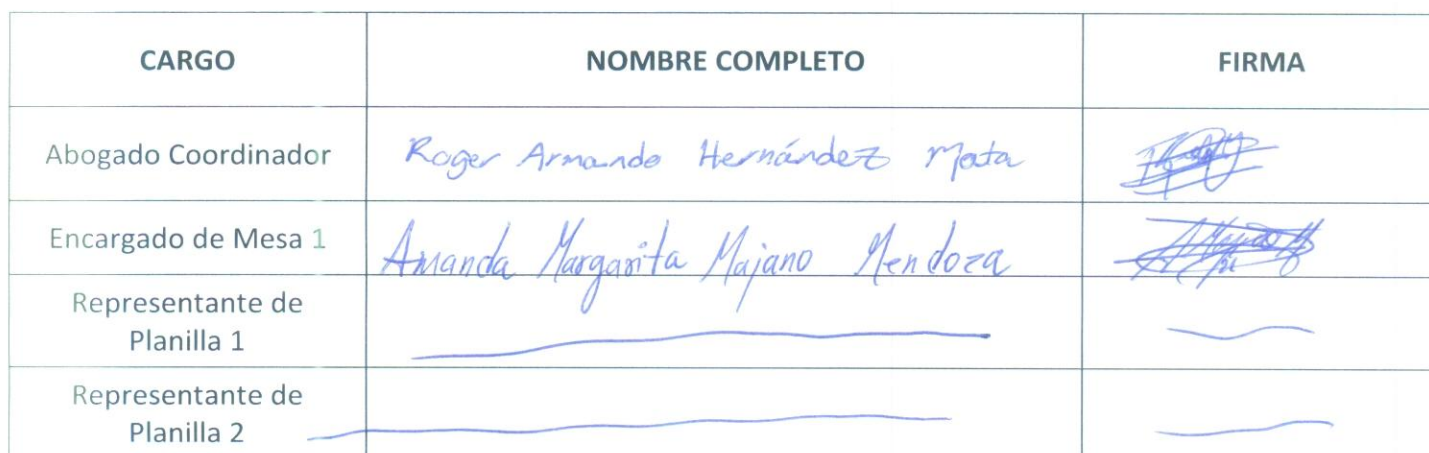 CARGO NOMBRE COMPLETO FIRMA
Abogado Coordinador Roger Armando Hernández Mata
Encargado de Mesa 1 Amanda Margarita Majano Mendoza
Representante de
Planilla 1
Representante de
Planilla 2